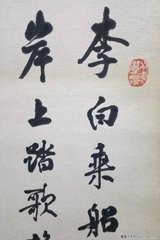 李白乘船
岸上踏歌